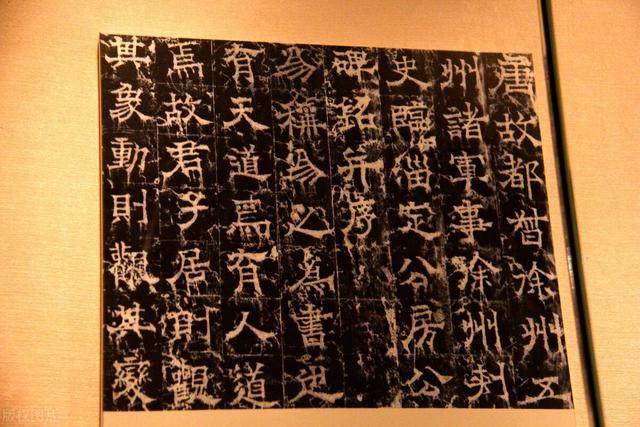 唐故都督徐州五
州諸軍事徐州刺
史臨淄定公房公
碑銘并序
易稱易之為書也
有天道焉有人道
焉故君子居則觀
其象動則觀其變
版权图片